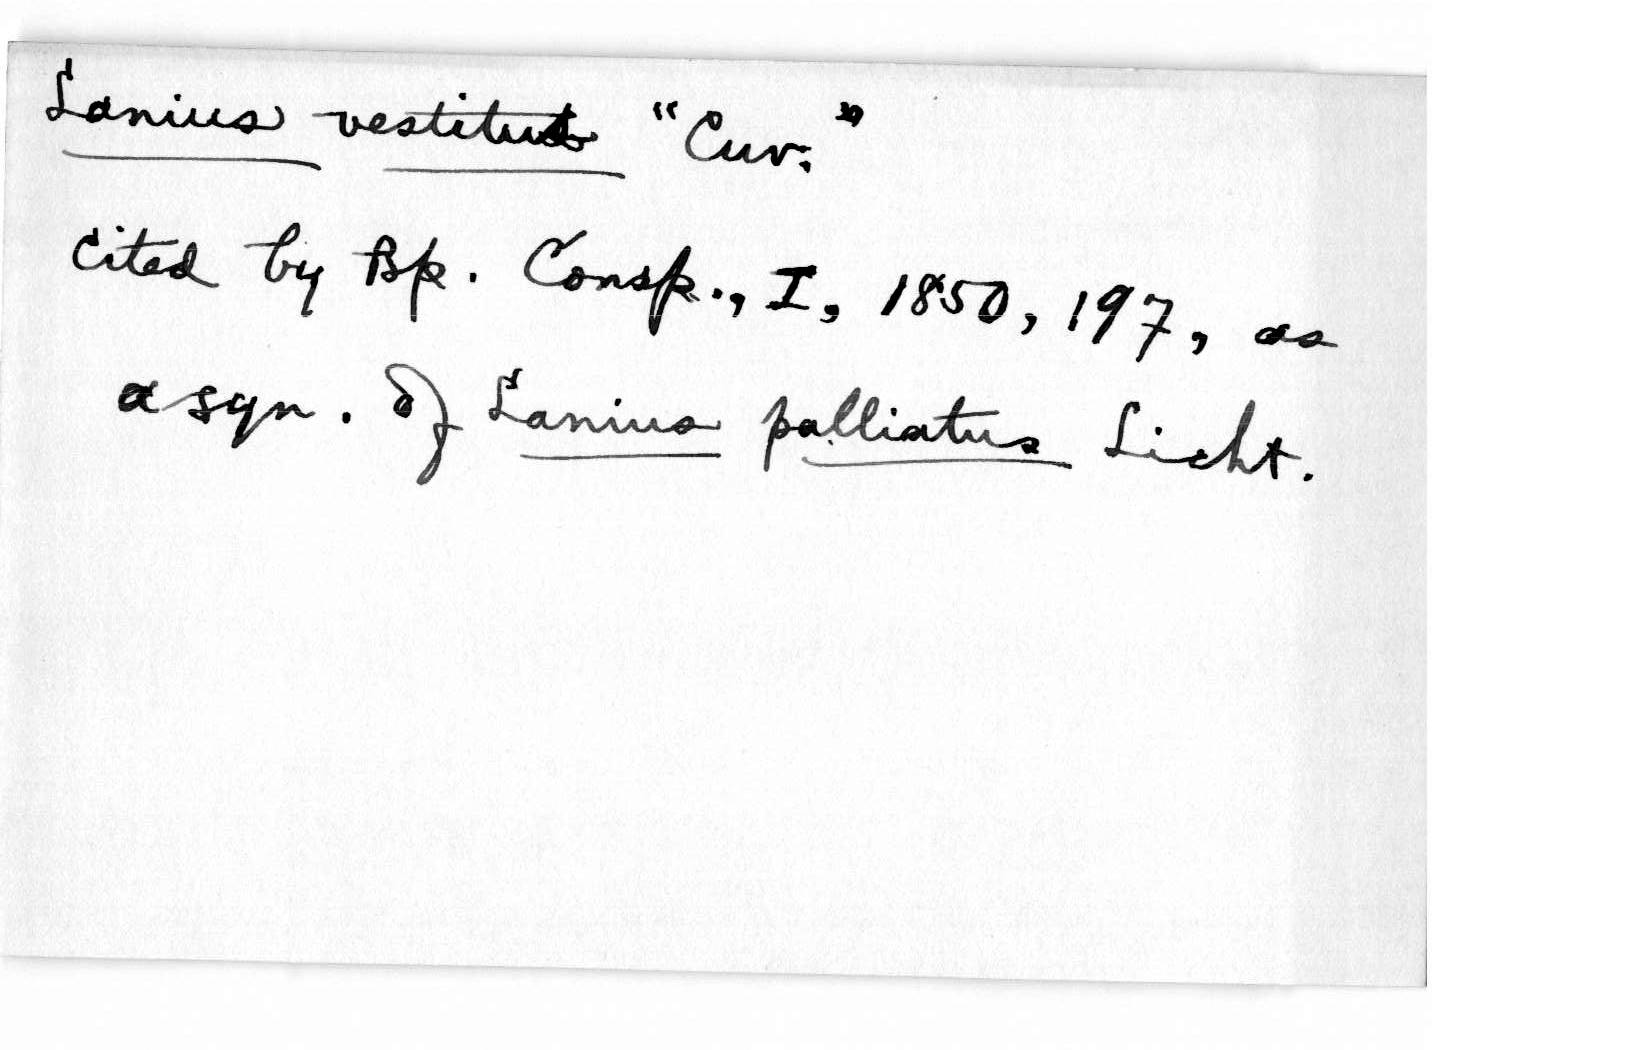 Lanius vestitus “Cuv.”
cited by Bp. Consp., I, 1850, 197, as
a syn. of Lanius palliatus Licht.